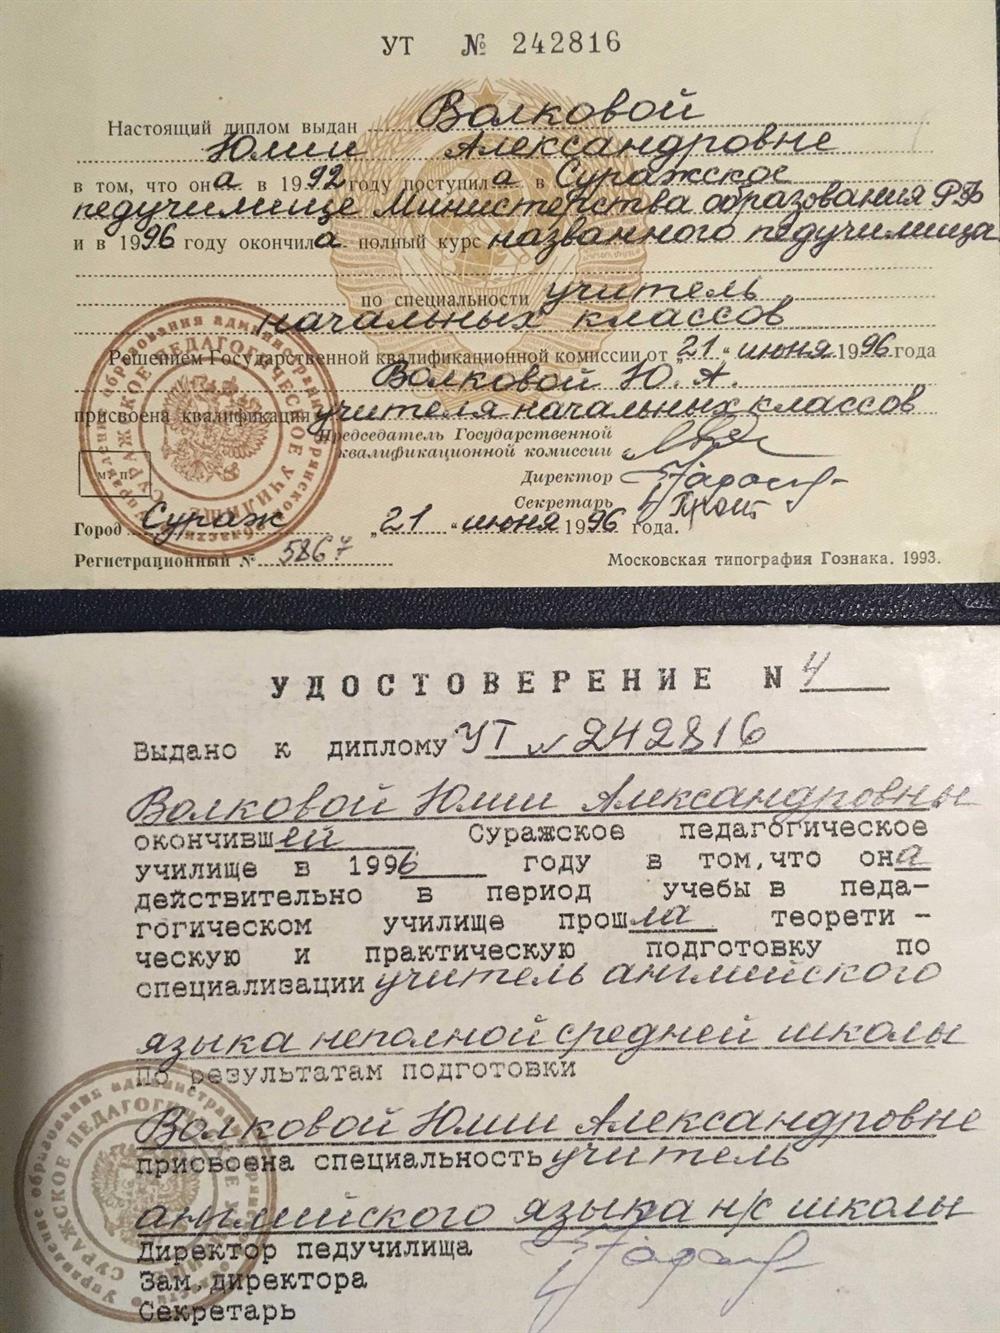 УТ № 242816
Настоящий диплом выдан Волковой
Юлии Александровне
в том, что она в 1992 году поступила в Суражское
педучилище Министерства образования РФ
и в 1996 году окончила полный курс названного педучилища
по специальности учитель
начальных классов
Решением Государственной квалификационной комиссии от „21“ июня 1996 года
Волковой Ю. А.
присвоена квалификация учителя начальных классов
Председатель Государственной
квалификационной комиссии
Директор
Секретарь
М. П.
Город Сураж „21“ июня 1996 года.
Регистрационный № 5867
Московская типография Гознака. 1993.
УДОСТОВЕРЕНИЕ N 4
Выдано к диплому УТ № 242816
Волковой Юлии Александровны
окончившей Суражское педагогическое
училище в 1996 году в том,что она
действительно в период учебы в педа-
гогическом училище прошла теорети-
ческую и практическую подготовку по
специализации учитель английского
языка неполной средней школы
По результатам подготовки
Волковой Юлии Александровне
присвоена специальность учитель
английского языка н/с школы
Директор педучилища
Зам.директора
Секретарь